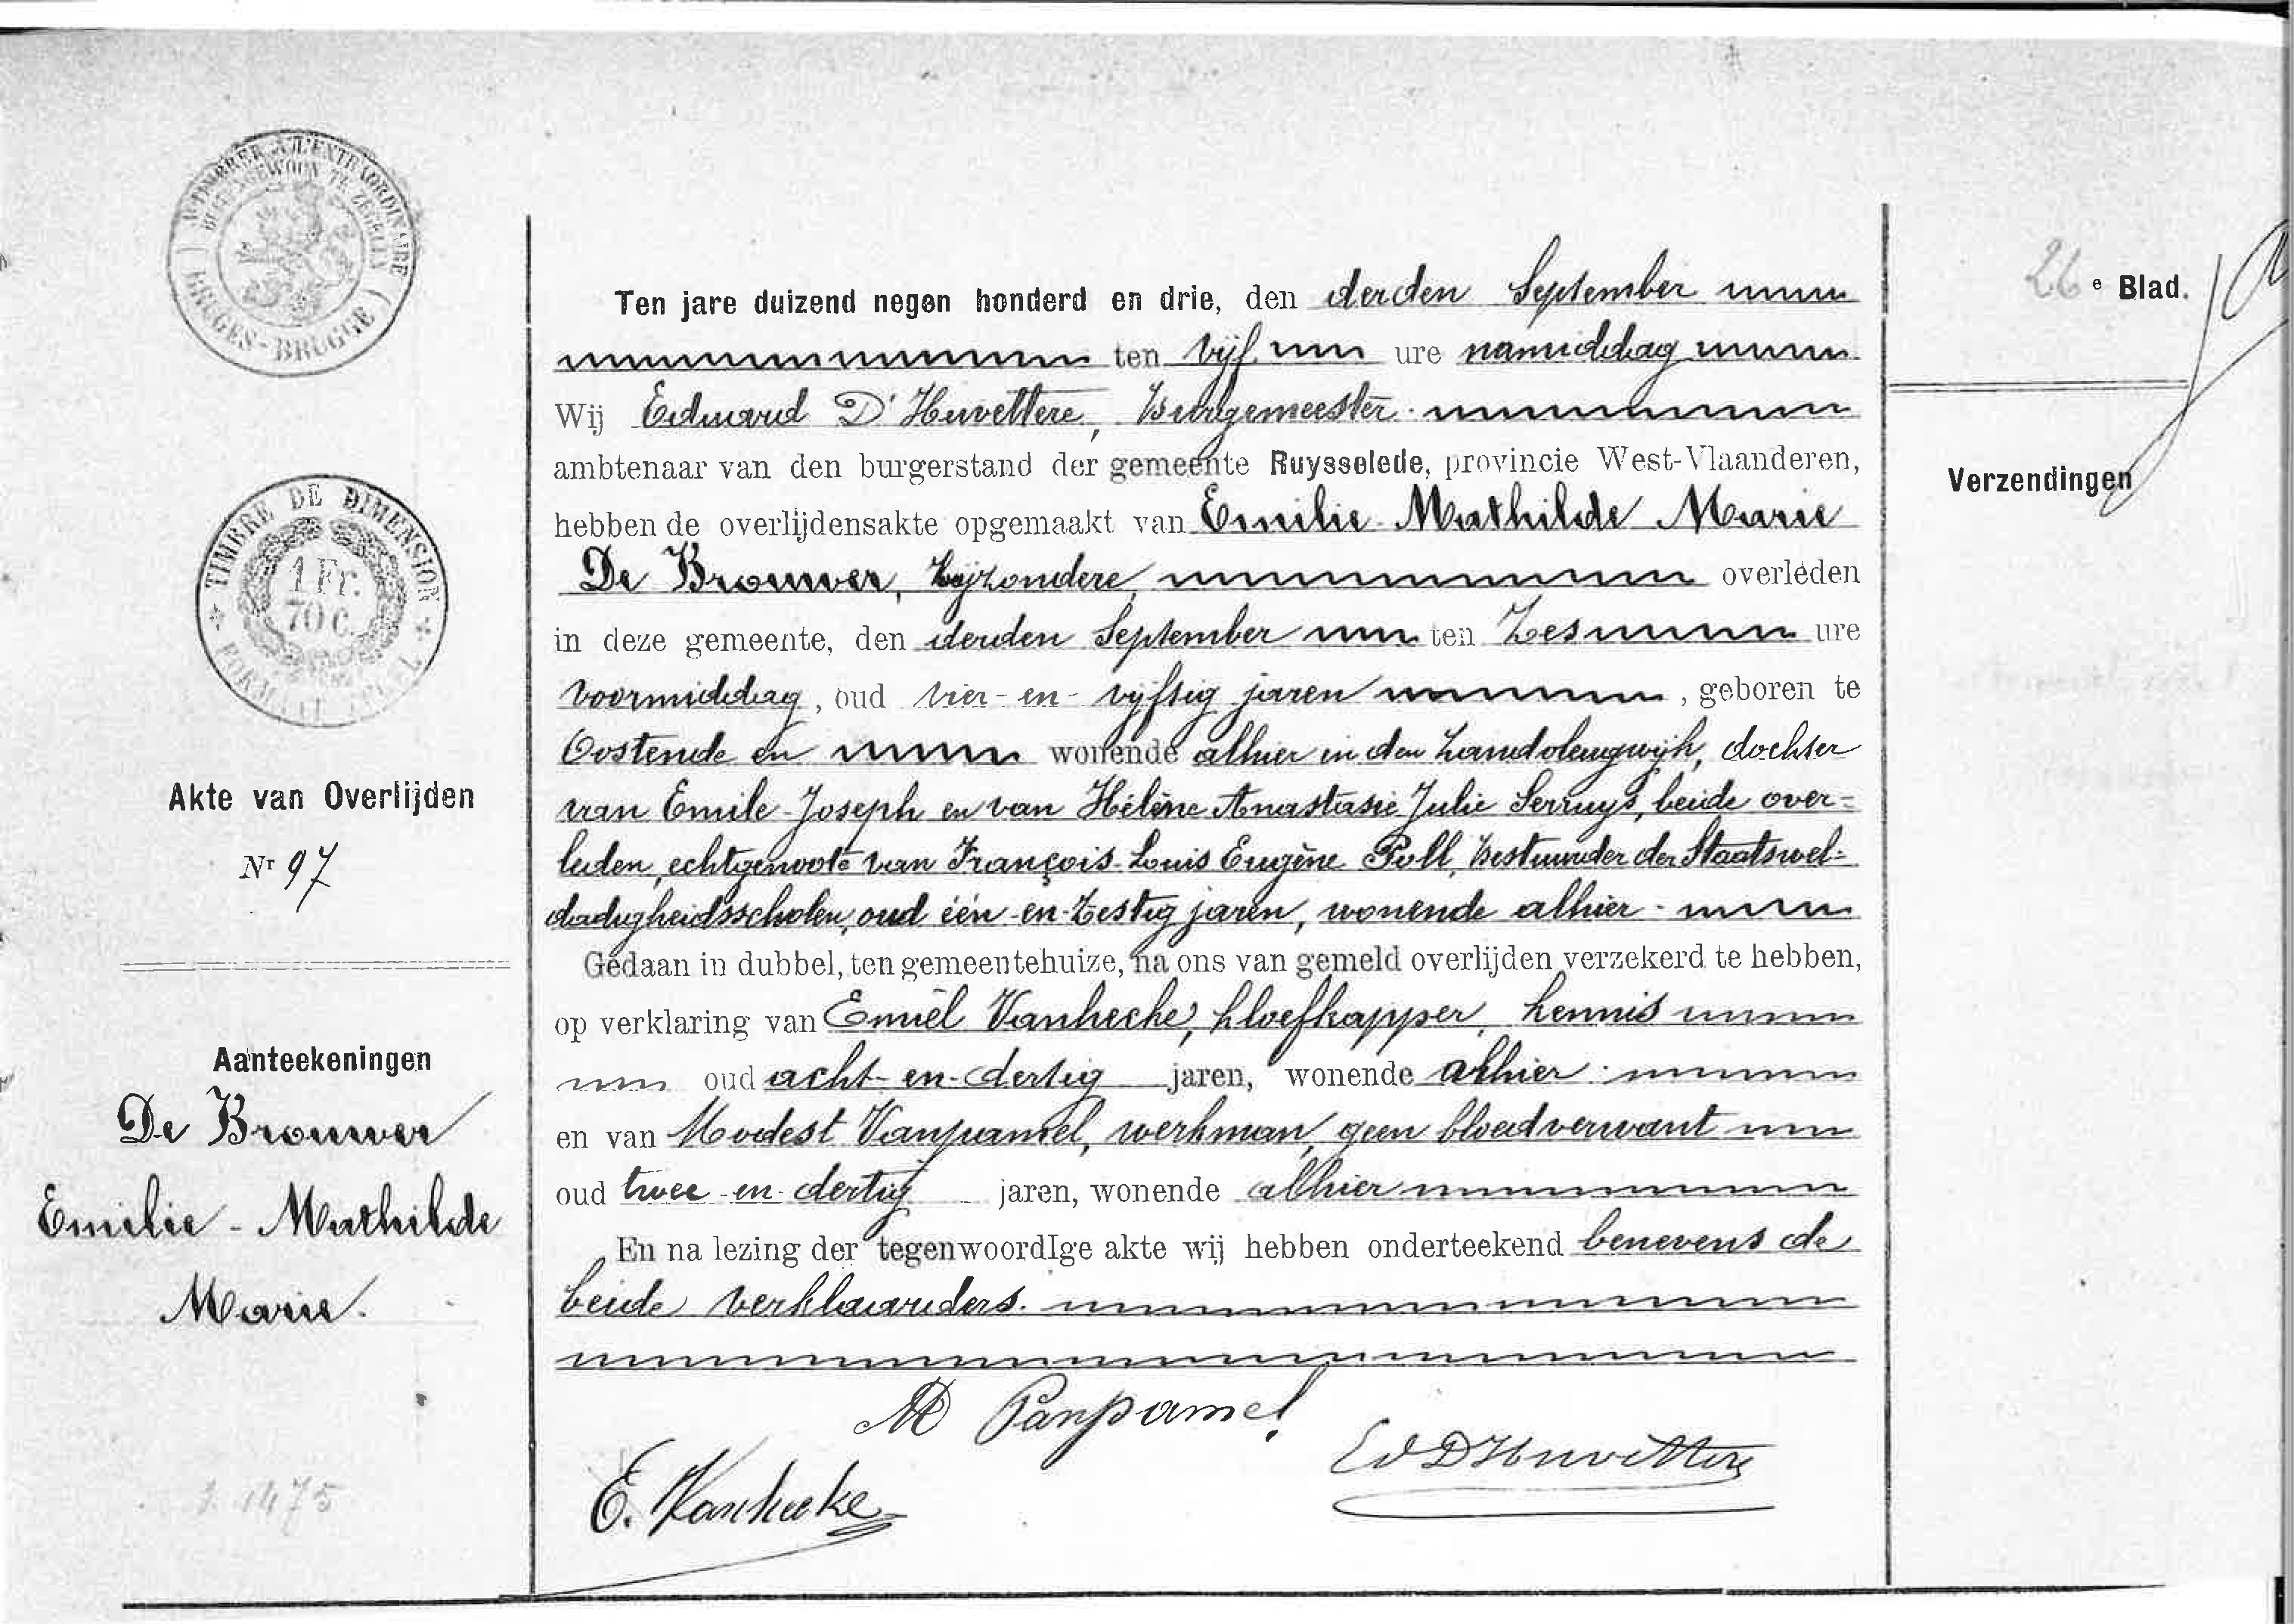 TIMBRE A L'EXTRAORDINAIRE
BUITENGEWOON TE ZEGELEN
BRUGES-BRUGGE
TIMBRE DE DIMENSION
1 Fr.
70 c.
Akte van Overlijden
Nr 97
Aanteekeningen
De Brouwer
Emilie-Mathilde
Marie.
1475
Ten jare duizend negen honderd en drie, den derden September
ten vijf ure namiddag
Wij Eduard D'Huvettere, Burgemeester
ambtenaar van den burgerstand der gemeente Ruysselede, provincie West-Vlaanderen,
hebben de overlijdensakte opgemaakt van Emilie-Mathilde Marie
De Brouwer, bijzondere, overleden
in deze gemeente, den derden September ten Zes ure
voormiddag, oud vier-en-vijftig jaren, geboren te
Oostende en wonende alhier in den, dochter
van Emile-Joseph en van Hélène Anastasie Julie Serruys, beide over-
leden, echtgenoote van François-Louis Eugène Poll, Bestuurder der Staatswel-
dadigheidsscholen, oud één-en-Zestig jaren, wonende alhier
Gedaan in dubbel, ten gemeentehuize, na ons van gemeld overlijden verzekerd te hebben,
op verklaring van Emiel Vanhecke, kloefkapper, kennis
oud acht-en-dertig jaren, wonende alhier
en van Modest Vanpamel, werkman, geen bloedverwant
oud twee-en-dertig jaren, wonende alhier
En na lezing der tegenwoordIge akte wij hebben onderteekend benevens de
beide verklaarders.
M Panpamel
E. Vanhecke
Ed D'Huvettere
26e Blad.
Verzendingen